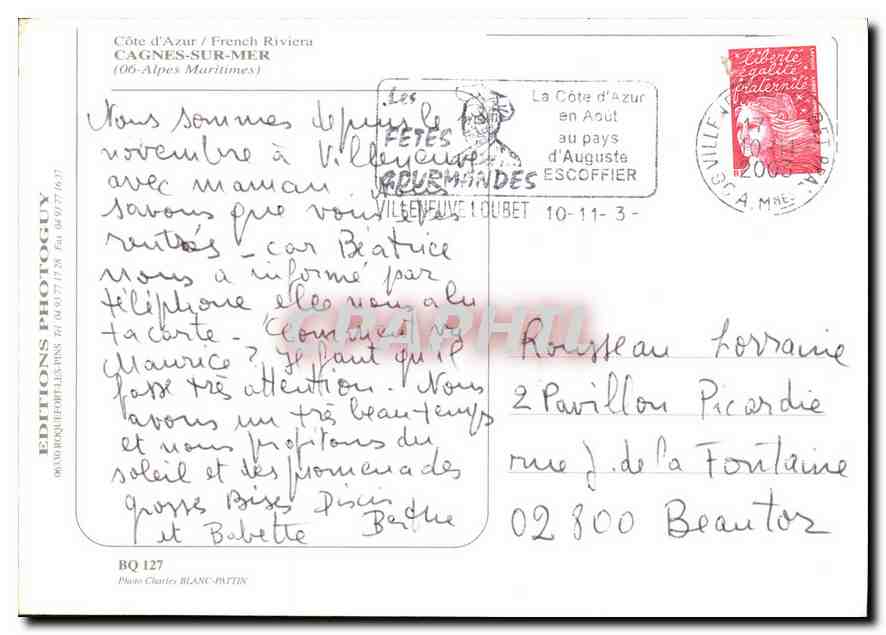 Côte d'Azur / French Riviera
CAGNES-SUR-MER
(06-Alpes Maritimes)
Nous sommes depuis le
novembre à Villeneuve
avec maman. Nous
savons que vous êtes
rentrés - car Béatrice
nous a informé par
téléphone elle nous a lu
ta carte - Comment va
Maurice? Il faut qu'il
fasse très attention. Nous
avons un très beau temps
et nous profitons du
soleil et des promenades
grosses Bises
et Babette Berthe
BQ 127
Photo Charles BLANC-PATTIN
EDITIONS PHOTOGUY
06330 ROQUEFORT-LES-PINS Tél 04 93 77 17 28 Fax 04 93 77 16 37
Les
FETES
GOURMANDES
La Côte d'Azur
en Août
au pays
d'Auguste
ESCOFFIER
VILLENEUVE LOUBET 10-11-3-
Liberté
égalité
fraternité
VILLENEUVE LOUBET PPAL
10-11
2003
06 A. Mmes
Rousseau Lorraine
2 Pavillon Picardie
rue J. de la Fontaine
02800 Beautor
CPAPHIL